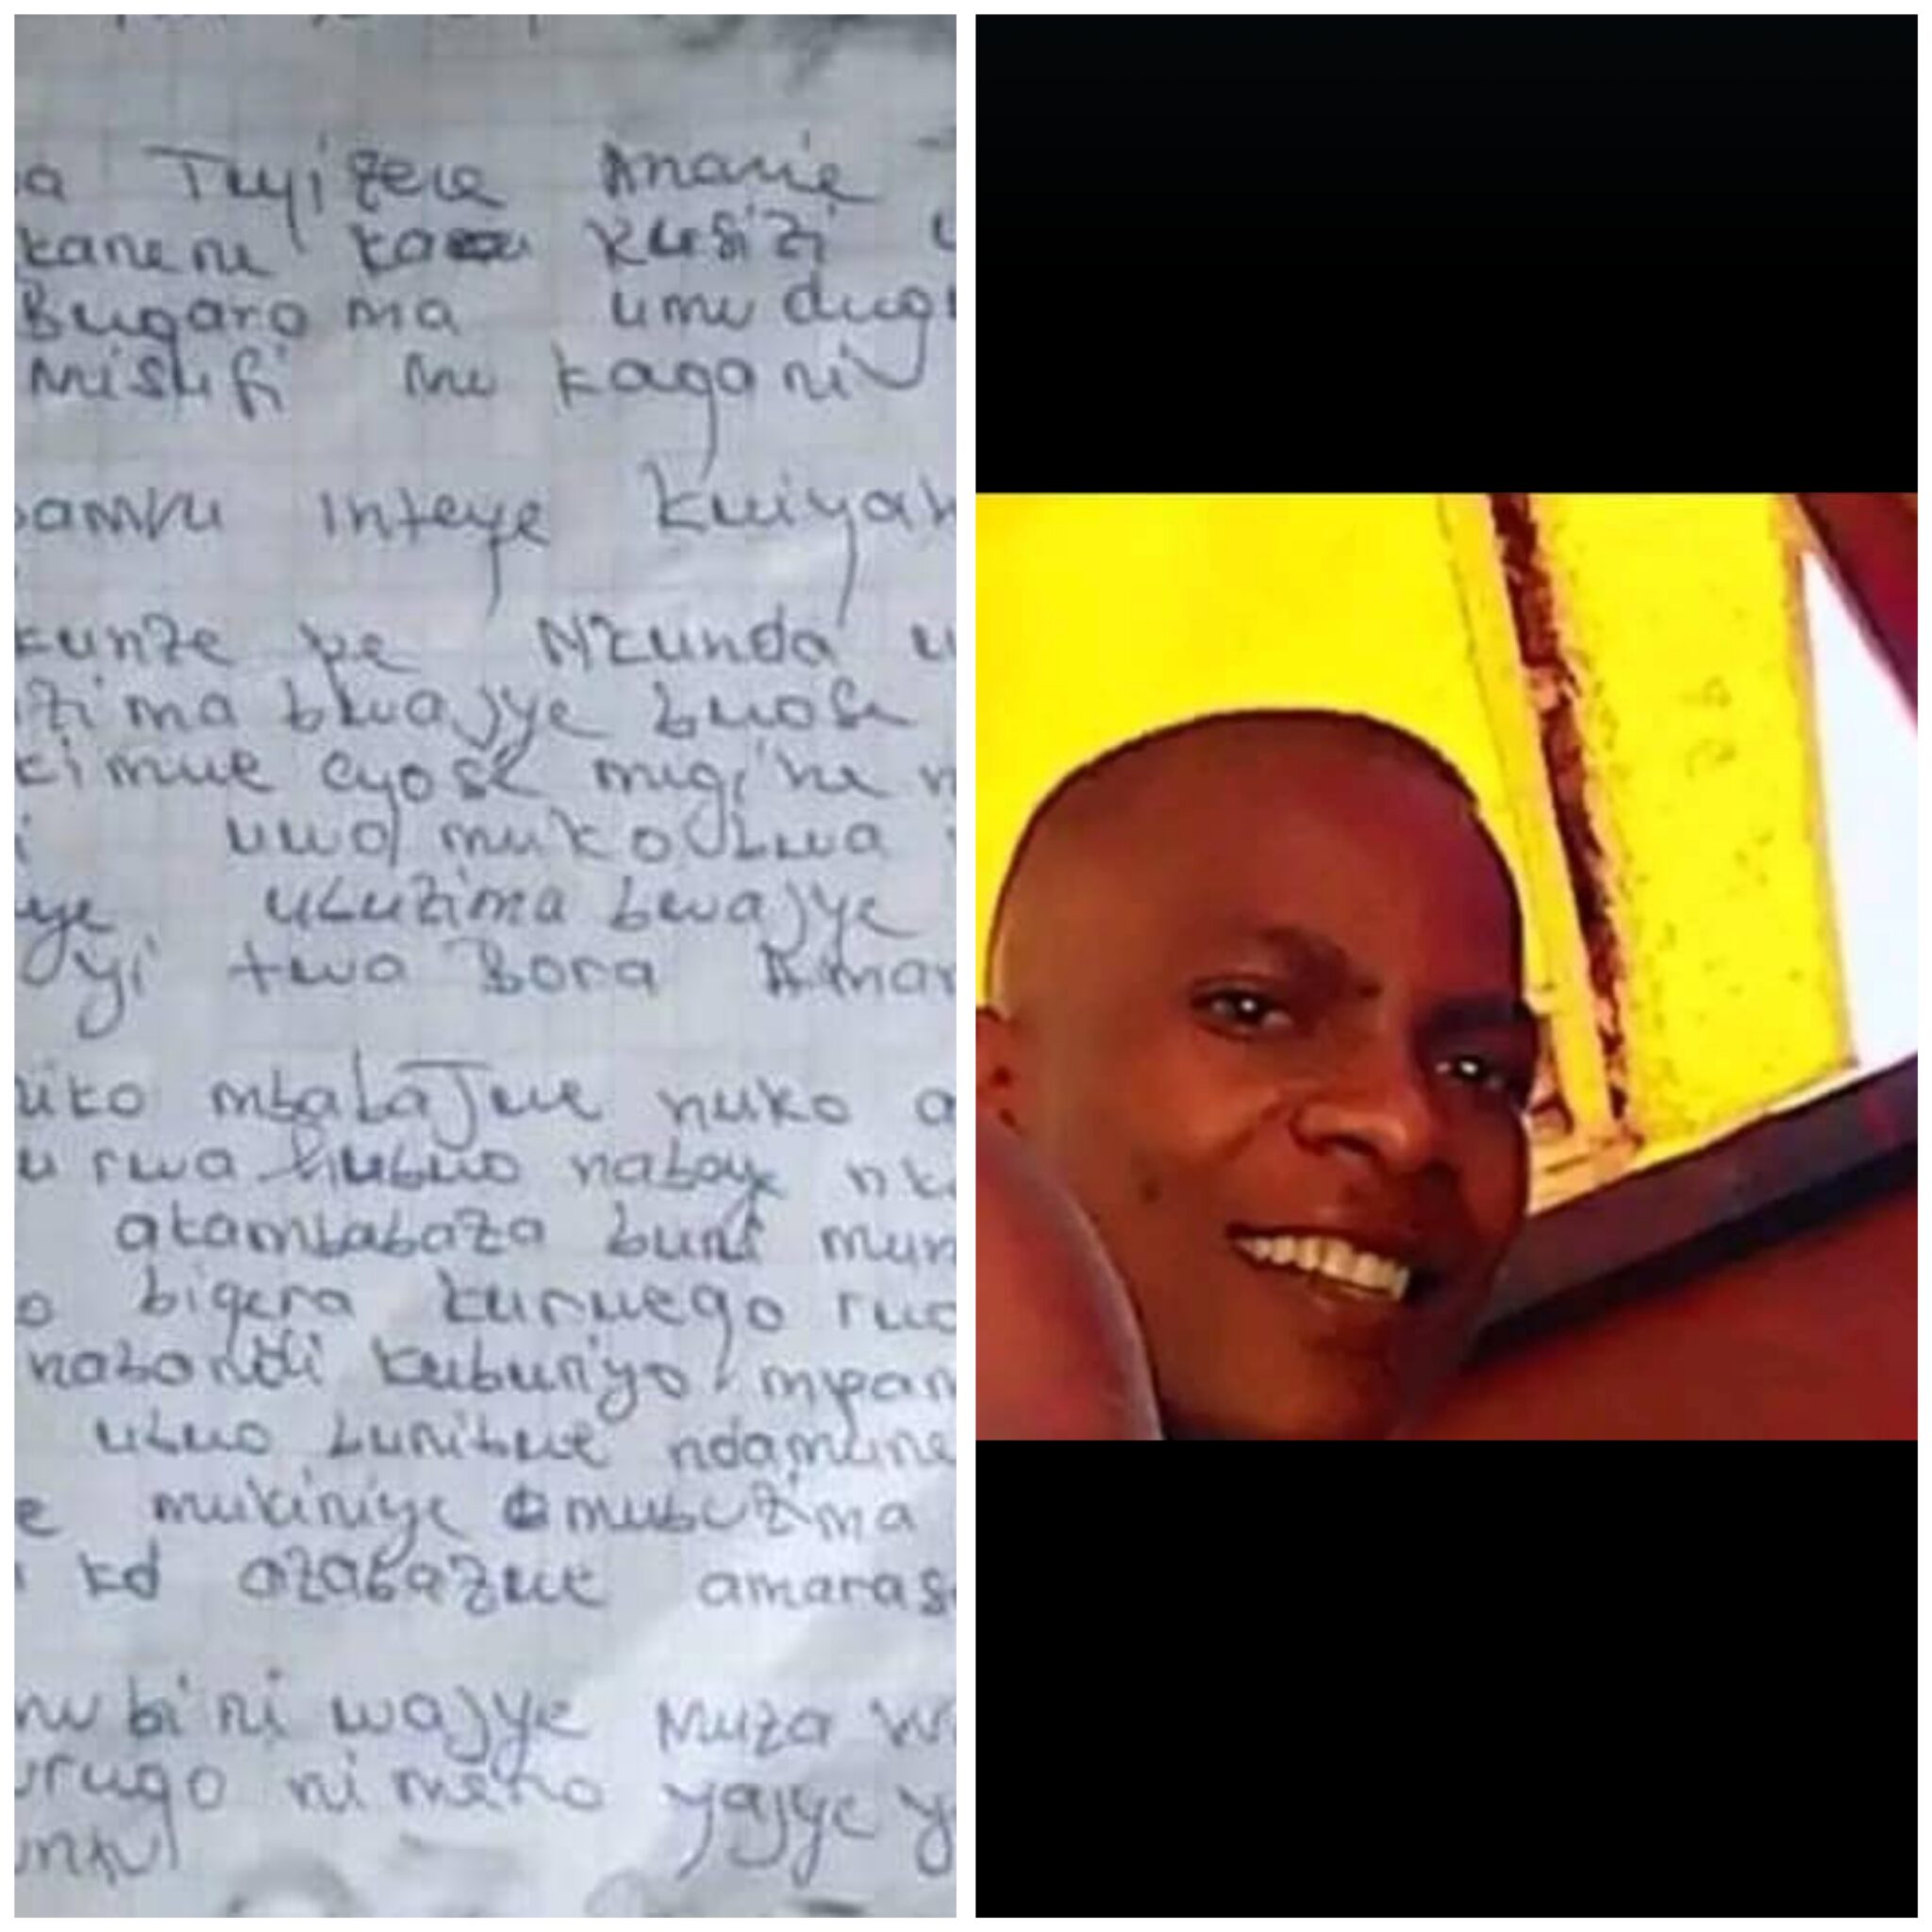 a Tuyizere Ananie
kanene ka Rusizi u
Bugarama umudugu
Misufi mu kagari
pamvu inteye kwiyah
kunze pe Nkunda u
zima bwajye bwose
kimwe cyose migihe n
i uwo mukobwa
ye ubuzima bwajye
yi twa Bora Amar
uko mbabajwe nuko a
u rwa hubwo nabaye nk
akambabaza bune mun
o bigera kurwego rwo
nabondi kuburiyo mpam
ubwo bunibwe ndamune
e mukiniye mubuzima
ko azabazwe amaras
mubiri wajye muza w
rugo ni meho yajye y
untu